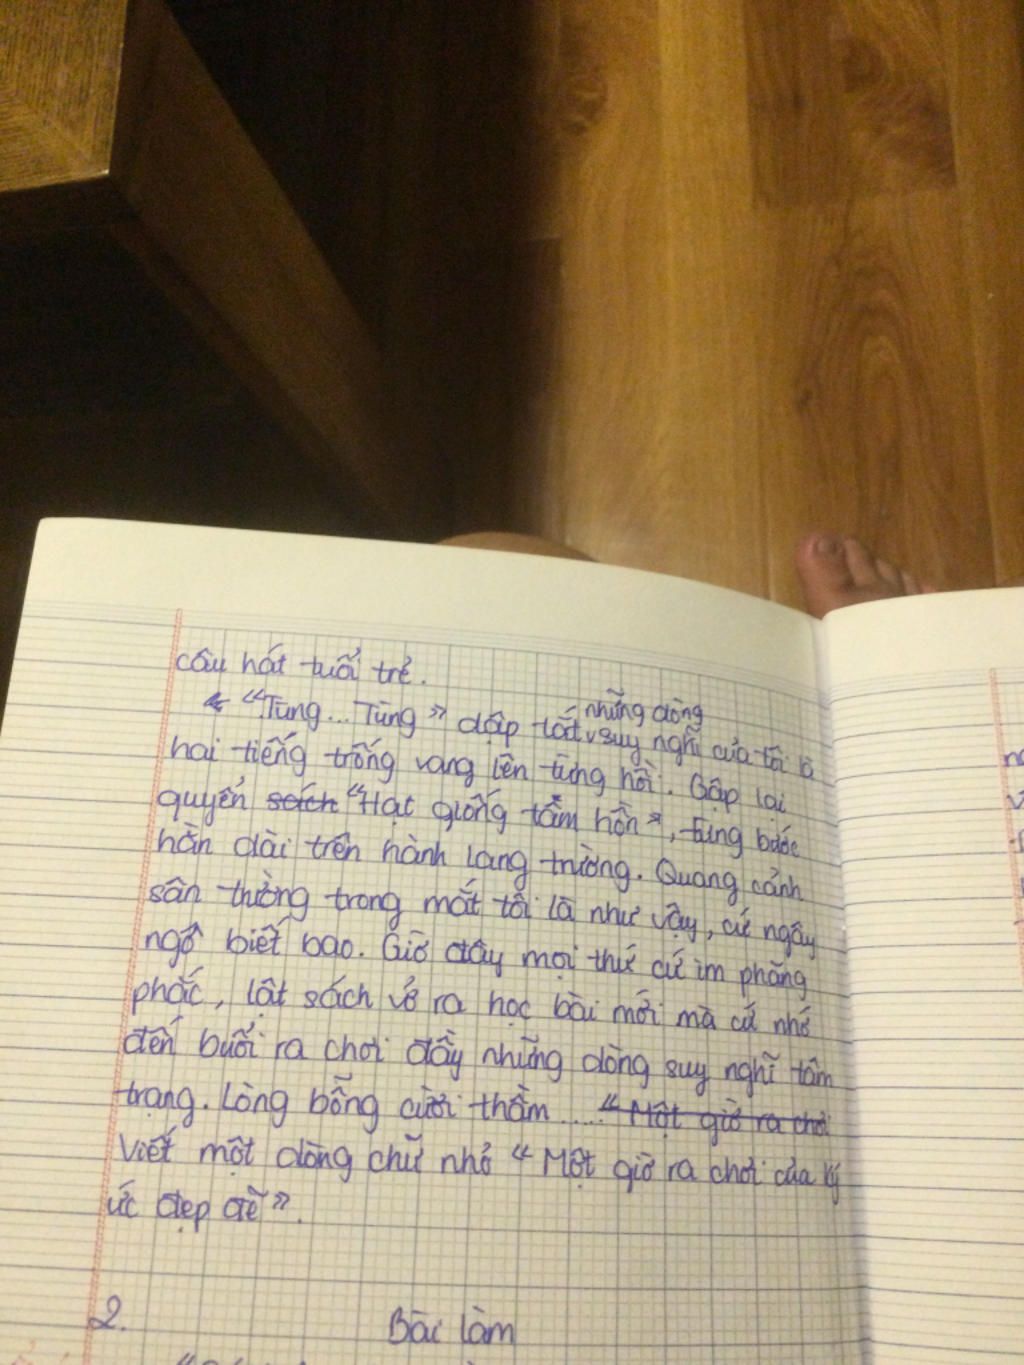 câu hát tuổi trẻ.
"Tùng... Tùng" dập tắt những dòng suy nghĩ của tôi là
hai tiếng trống vang lên từng hồi. Gập lại
quyển sách "Hạt giống tâm hồn", từng bước
hằn dài trên hành lang trường. Quang cảnh
sân trường trong mắt tôi là như vậy, cứ ngây
ngô biết bao. Giờ đây mọi thứ cứ im phăng
phắc, lật sách vở ra học bài mới mà cứ nhớ
đến buổi ra chơi đầy những dòng suy nghĩ tâm
trạng. Lòng bỗng cười thầm ..... "Một giờ ra chơi
Viết một dòng chữ nhỏ "Một giờ ra chơi của ký
ức đẹp đẽ".
2.
Bài làm